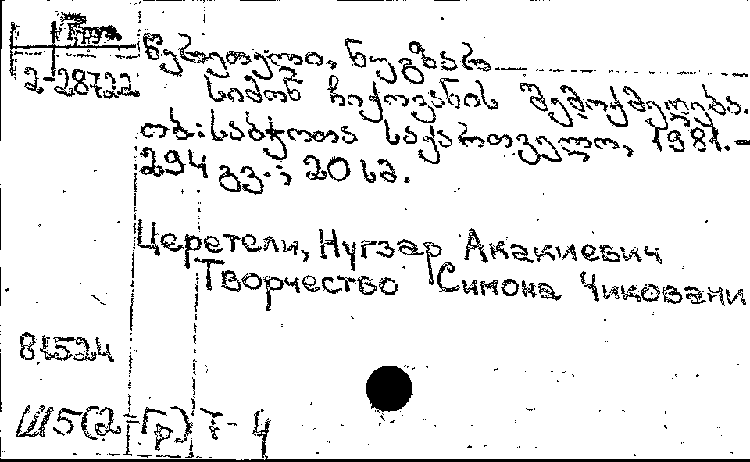 Груз.
2-28722
წერეთელი, ნუგზარ
სიმონ ჩიქოვანის შემოქმედება.
თბ.: საბჭოთა საქართველო, 1981.-
294 გვ.; 20 სმ.
Церетели, Нугзар Акакиевич
Творчество Симона Чиковани
81524
Ш5(2=Гр)7-4